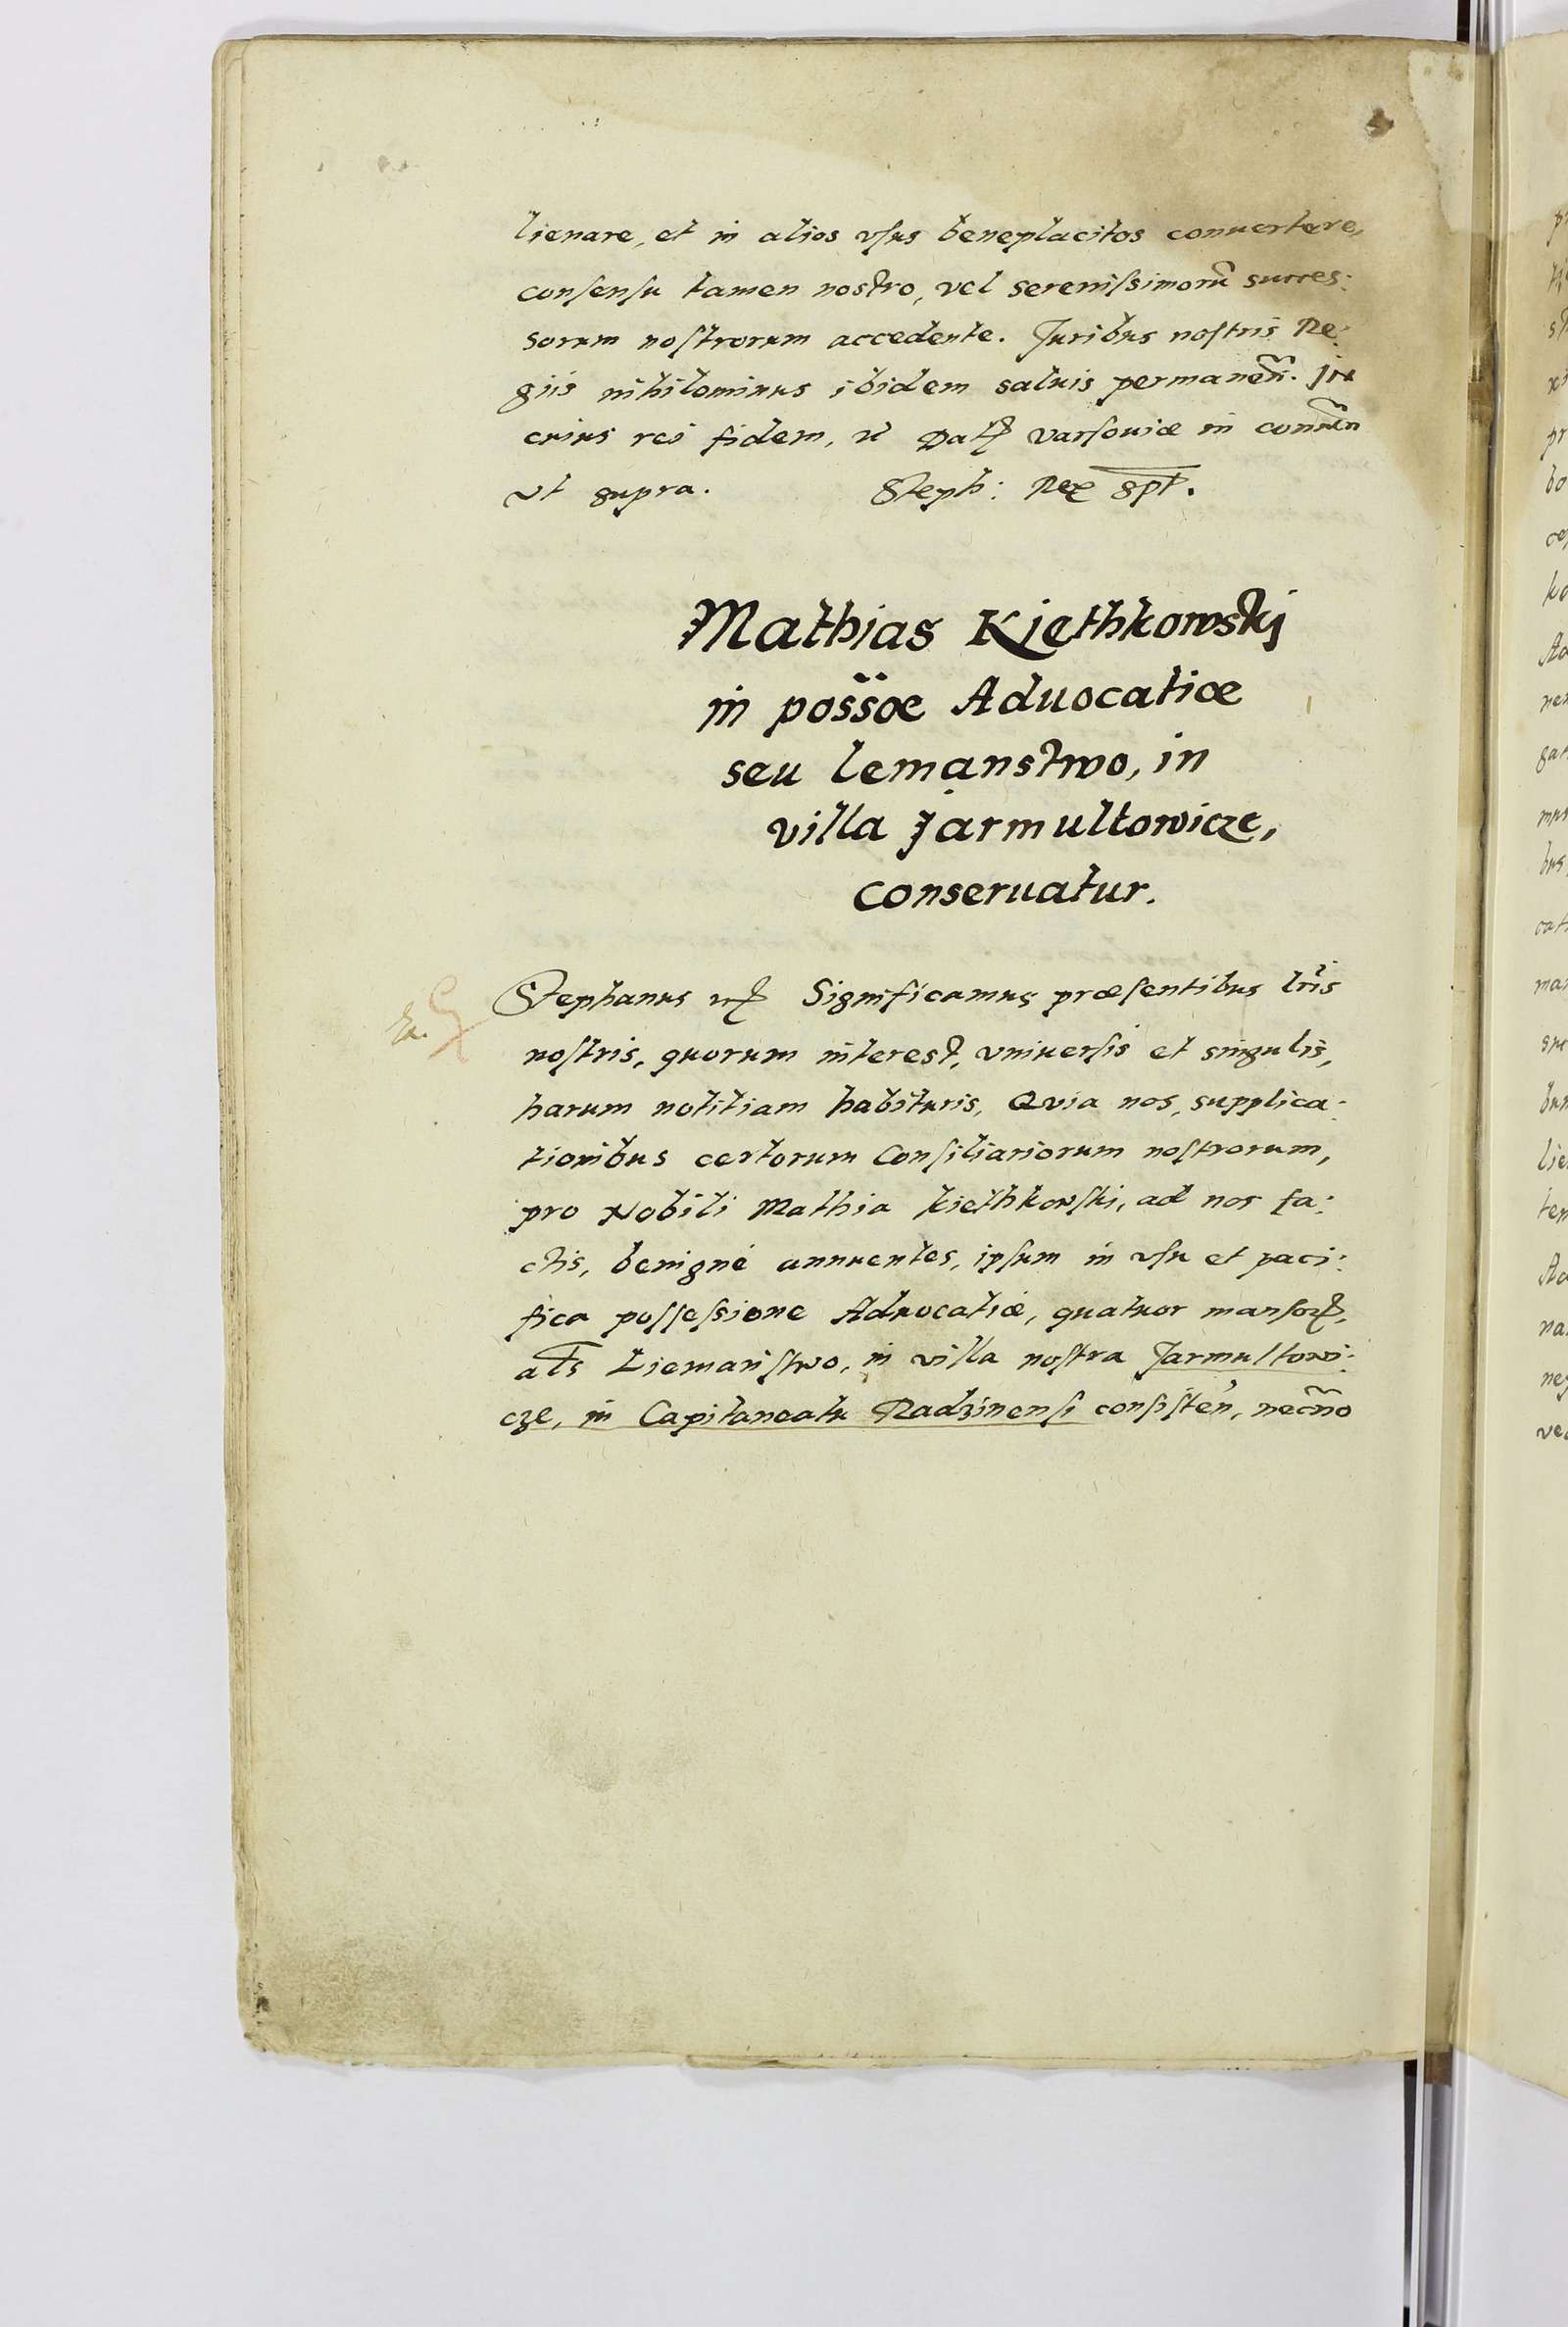 lienare, et in alios vsus beneplacitos conuertere,
consensu tamen nostro, vel serenissimorũ succes:
sorum nostrorum accedente. Juribus nostris Re:
giis nihilominus ibidem saluis permaneñ. In
cuius rei fidem, Varsouiæ in conuen̄
vt supra. Steph: Rex spt.
Mathias Kiethkowski
in possõe Aduocatiæ
seu lemanstwo, in
villa Jarmultowicze,
conseruatur.
Stephanus Significamus præsentibus lr̃is
nostris, quorum interest, vniuersis et singulis,
harum notitiam habituris, Qvia nos, supplica:
tionibus certorum Consiliariorum nostrorum,
pro Nobili Mathia Kiethkowski, ad nos fa:
ctis, benignè annuentes, ipsum in vsu et paci:
fica possessione Aduocatiæ, quatuor mansorꝝ,
als Liemanstwo, in villa nostra Jarmultowi:
cze, in Capitaneatu Radzinensi consisteñ, necño